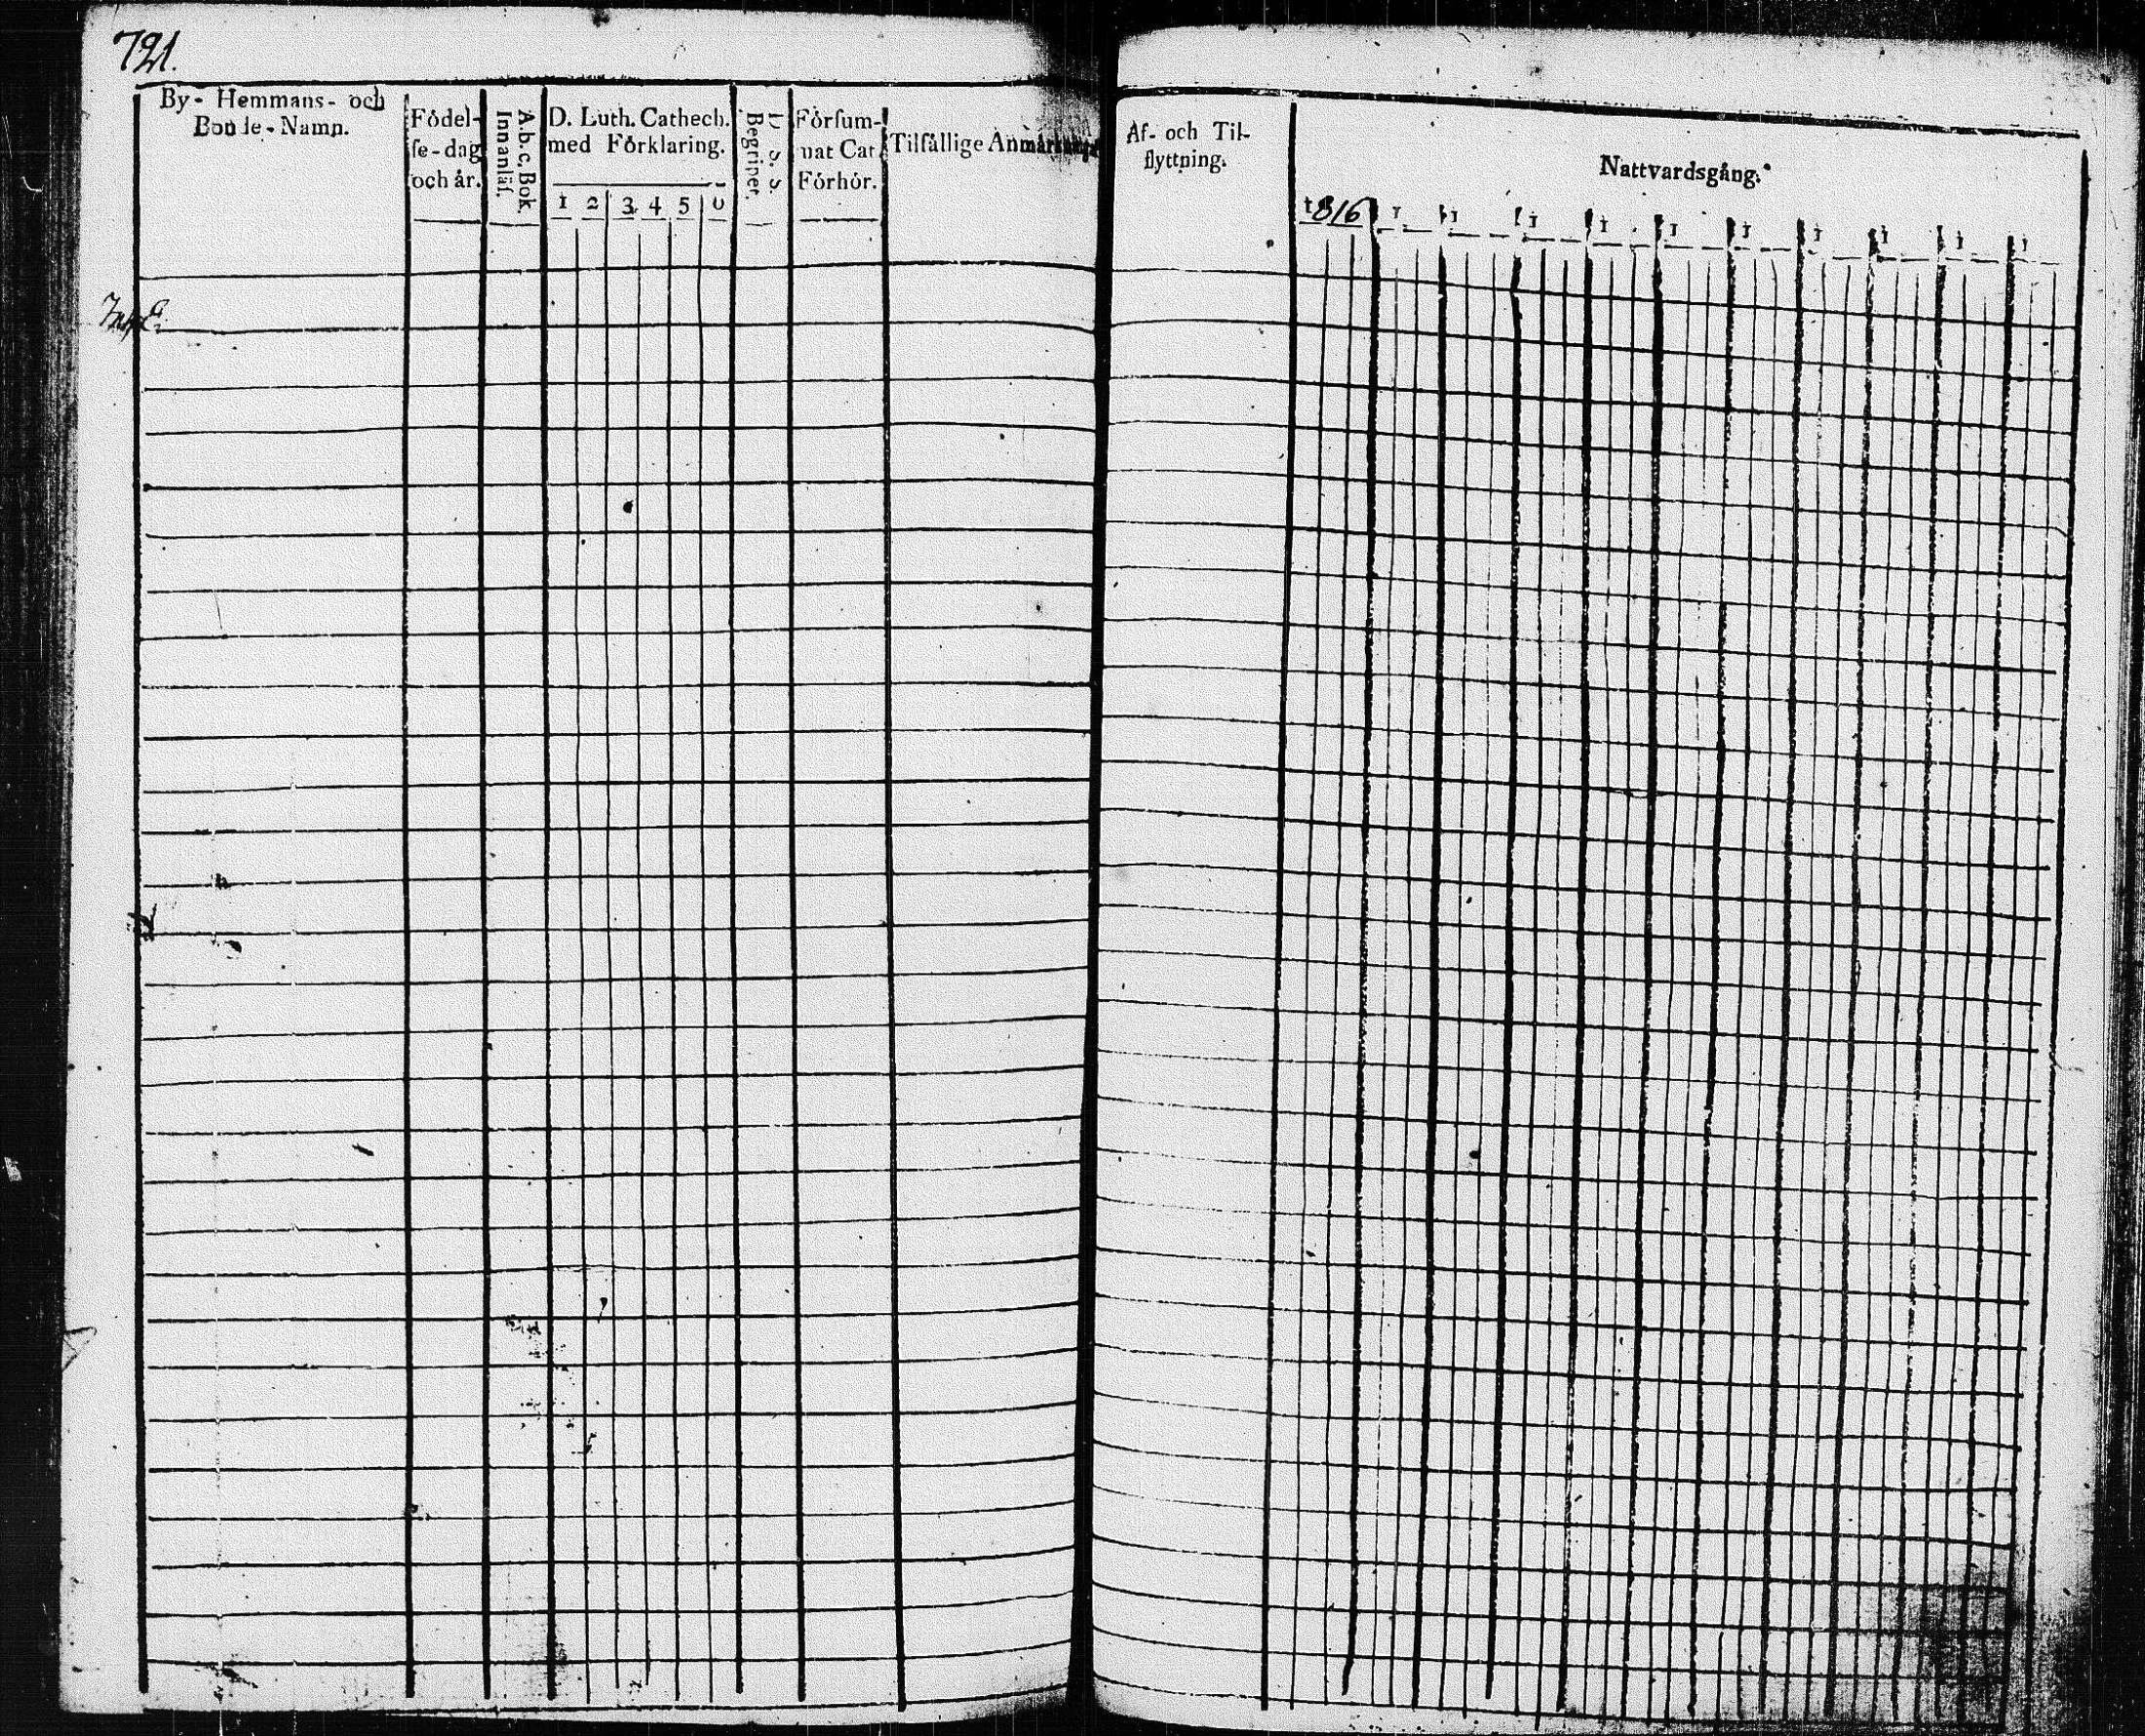 721.
By- Hemmans- och
Bonde-Namn.
Födel-
se-dag
och år.
A.b.c. Bok.
Innanläs.
D. Luth. Cathech.
med Förklaring.
1 2 3 4 5
Begriper.
Försum-
nat Cat
Förhör.
Tilfällige
Af- och Til-
flyttning.
Nattvardsgång.
1816 1 1 1 1 1 1 1 1 1 1